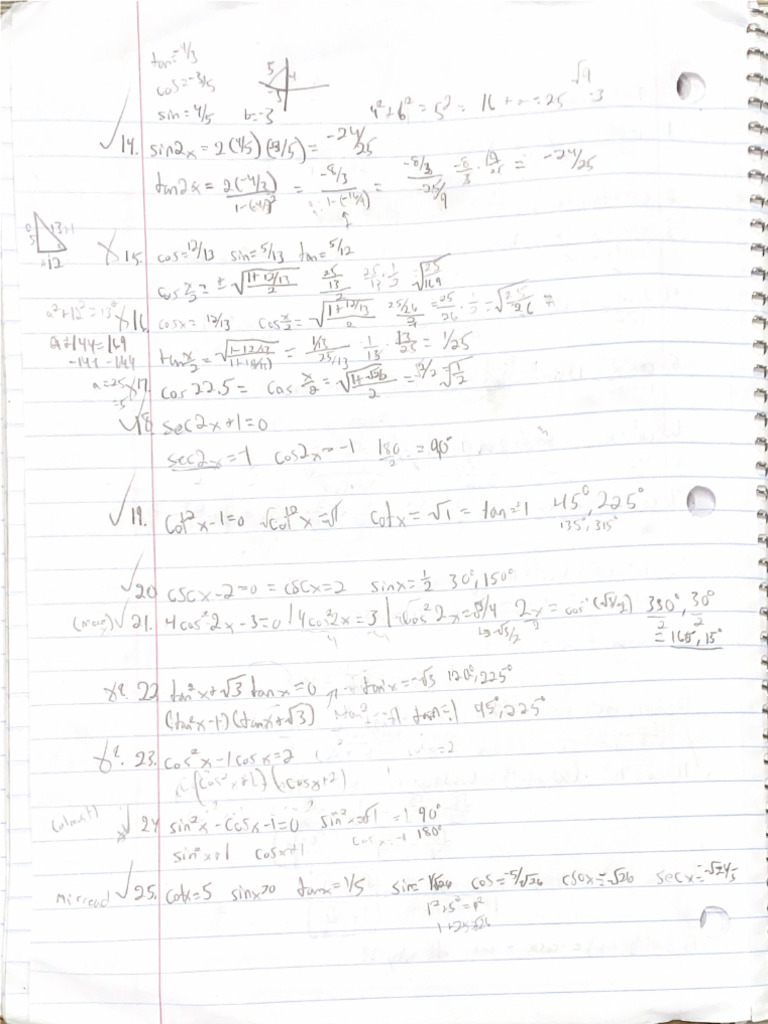 tan=-4/3
cos=-3/5
sin=4/5 b=-3 4²+b²=5²= 16+ =25 √9 -3
5 4 -3
✓ 14. sin2x = 2(4/5)(-3/5) = -24/25
tan2x = 2(-4/3) / 1-(-4/3)² = -8/3 / 1-(-16/9) = -8/3 / -25/9 -8/3 · 9/25 = -24/25
5 13 12
X 15. cos=12/13 sin=5/13 tan=5/12
cos x/2 = ± √(1+12/13 / 2) 25/13 / 2 25/13 · 1/2 = √25/169
a²+12²=13² X 16. cosx = 12/13 cos x/2 = √(1+12/13 / 2) 25/26 / 2 = 25/26 · 1/2 = √25/26
a+144=169 tan x/2 = √(1-12/13 / 1+12/13) = 1/13 / 25/13 1/13 · 13/25 = 1/25
-144 -144
a=25 X 17. cos 22.5 = cos x/2 = √(1+√2/2 / 2) = √2/2 = √1/2
=5
✓ 18. sec2x+1=0
sec2x=-1 cos2x=-1 180/2 = 90°
✓ 19. cot²x-1=0 √cot²x=√1 cotx = √1 = tan=1 45°, 225°
135°, 315°
✓ 20 cscx-2=0 = cscx=2 sinx=1/2 30°, 150°
(more) ✓ 21. 4cos²2x-3=0 | 4cos²2x=3 | √cos²2x=3/4 2x/2 = cos⁻¹(√3/2) 330°/2, 30°/2
4 4 √3/2 = 165, 15°
X? 22 tan²x+√3 tanx=0 → tanx=-√3 120°, 225°
(tan²x-1)(tanx+√3) tan²=1 tan=1 45°, 225°
X?. 23. cos²x-1cosx=2 =2
(cos²x+1)(cosx+2)
✓ 24 sin²x-cosx-1=0 sin²x=√1 =1 90°
sin²x+1 cosx+1 cosx=-1 180°
misread ✓ 25. cotx=5 sinx>0 tanx=1/5 sin=-1/√26 cos=-5/√26 cscx=-√26 secx=-√24/5
1²+5²=r²
1+25=26